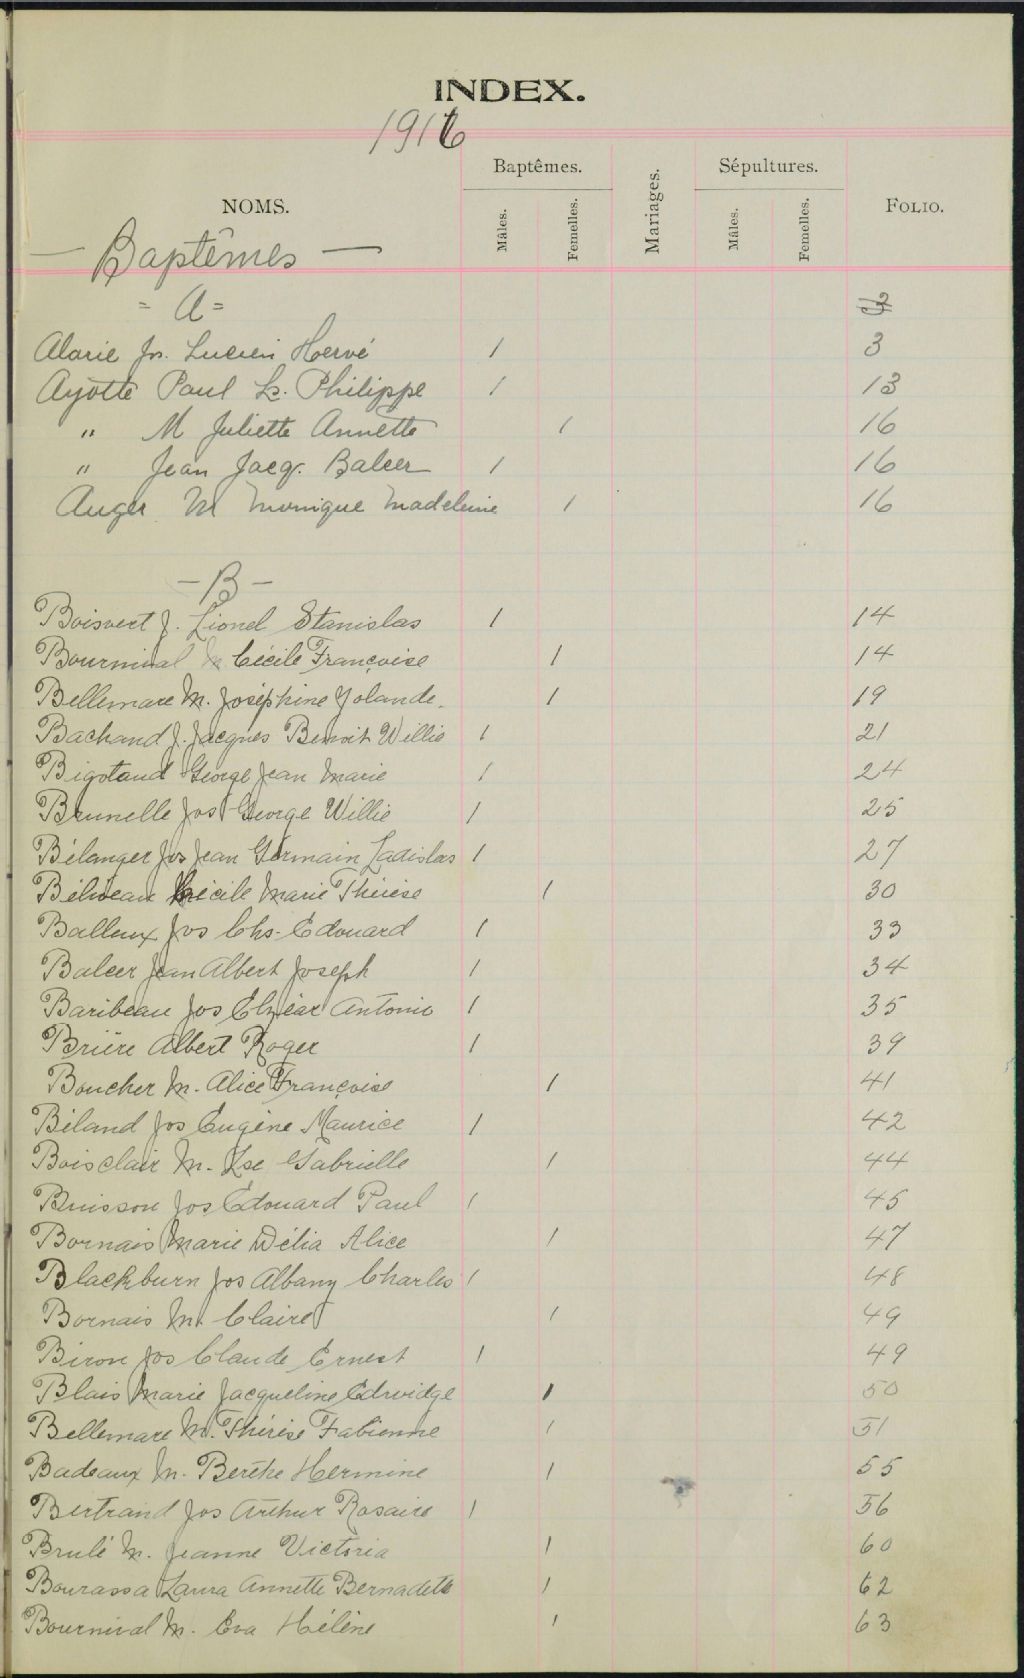 INDEX.
1916
NOMS. Baptêmes. Mâles. Femelles. Mariages. Sépultures. Mâles. Femelles. FOLIO.
— Baptêmes —
= A = 3
Alarie Jos. Lucien Hervé 1 3
Ayotte Paul Ls. Philippe 1 13
" M Juliette Annette 1 16
" Jean Jacq. Balcer 1 16
Auger M Monique Madeleine 1 16
— B —
Boisvert J. Lionel Stanislas 1 14
Bournival M Cécile Françoise 1 14
Bellemare M. Joséphine Yolande. 1 19
Bachand J. Jacques Benoit Willie 1 21
Bigotaud George Jean Marie 1 24
Brunelle Jos George Willie 1 25
Bélanger Jos Jean Germain Ladislas 1 27
Béliveau Cécile Marie Thérèse 1 30
Balleux Jos Chs-Edouard 1 33
Balcer Jean Albert Joseph 1 34
Baribeau Jos Elzéar Antonio 1 35
Brière Albert Roger 1 39
Boucher M. Alice Françoise 1 41
Béland Jos Eugène Maurice 1 42
Boisclair M. Lse Gabrielle 1 44
Buisson Jos Edouard Paul 1 45
Bornais Marie Délia Alice 1 47
Blackburn Jos Albany Charles 1 48
Bornais M. Claire 1 49
Biron Jos Claude Ernest 1 49
Blais Marie Jacqueline Edwidge 1 50
Bellemare M. Thérèse Fabienne 1 51
Badeaux M. Berthe Hermine 1 55
Bertrand Jos Arthur Rosaire 1 56
Brulé M. Jeanne Victoria 1 60
Bourassa Laura Annette Bernadette 1 62
Bournival M. Eva Hélène 1 63